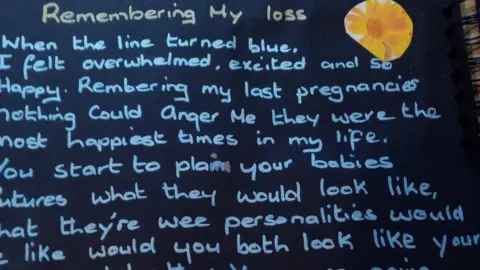 Remembering My loss
When the line turned blue.
I felt overwhelmed, excited and so
Happy. Rembering my last pregnancies
nothing Could Anger Me they were the
most happiest times in my life.
You start to plain your babies
futures what they would look like,
what they're wee personalities would
like would you both look like your